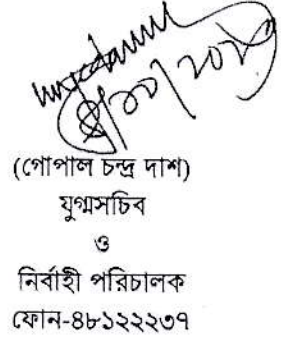 (গোপাল চন্দ্র দাশ)
যুগ্মসচিব
ও
নির্বাহী পরিচালক
ফোন-৪৮১২২২৩৭